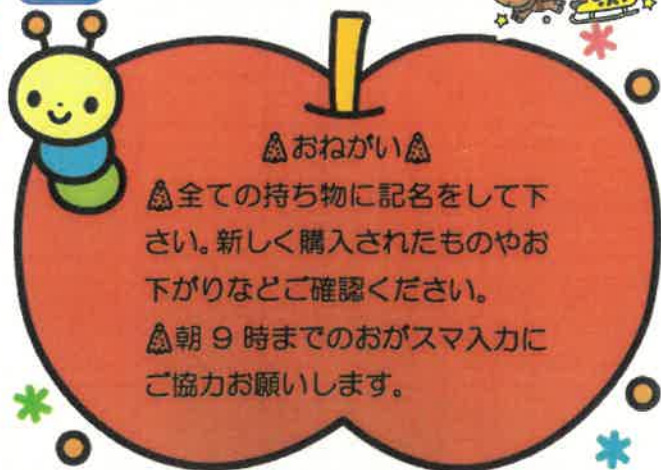 おねがい
全ての持ち物に記名をして下
さい。新しく購入されたものやお
下がりなどご確認ください。
朝 9 時までのおがスマ入力に
ご協力お願いします。